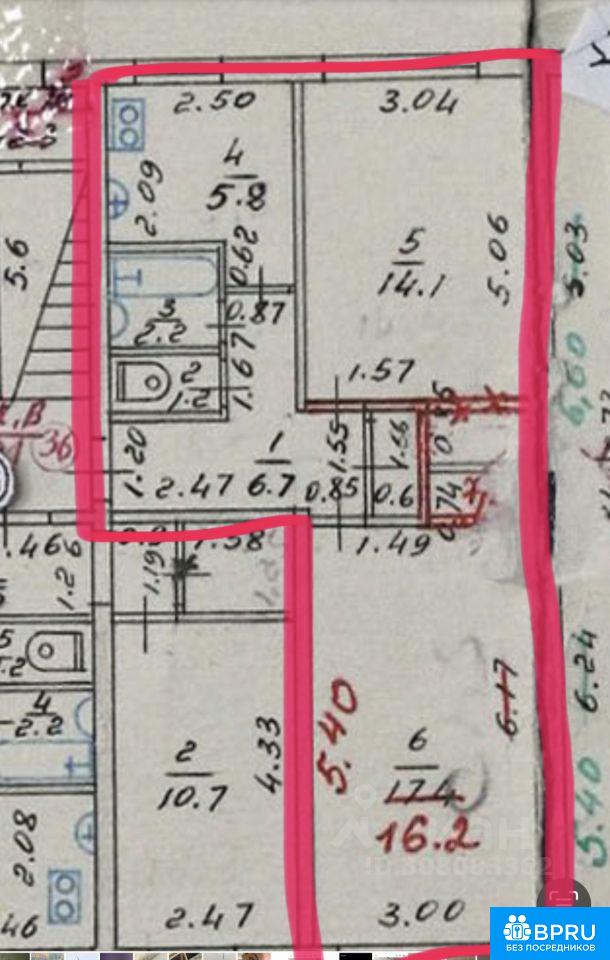 2.50
3.04
4
5.8
2.09
0.62
5
14.1
5.06
5.03
6,60
5.6
3
2.2
0.87
2
1.2
1.67
1.57
36
1.20
1
6.7
1.55
1.56
2.47
0.85
0.6
74
.466
1.38
1.49
1.19
1.2
5
.2
4
2.2
2
10.7
4.33
5.40
6
17.4
16.2
6.17
6.24
5.40
2.08
46
2.47
3.00
BPRU
БЕЗ ПОСРЕДНИКОВ